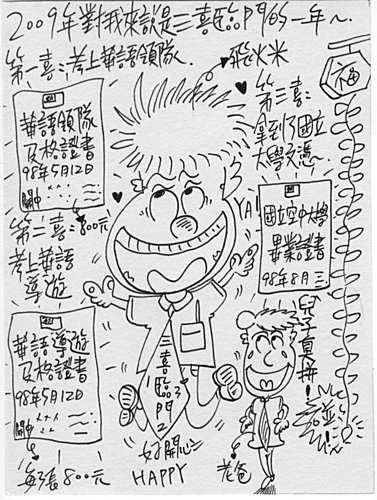 2009年對我來說是三喜臨門的一年~.
第一喜:考上華語領隊.
飛火米
福
華語領隊
及格證書
98年5月12日
關中
第三喜:
拿到了國立
大學文憑.
第二喜:800元
考上華語
導遊
YA!
國立空中大學
畢業證書
98年8月三
華語導遊
及格證書
98年5月12日
關中
三喜臨門
1
2
3
兒子真拼!
每張800元
好開心
HAPPY
老爸